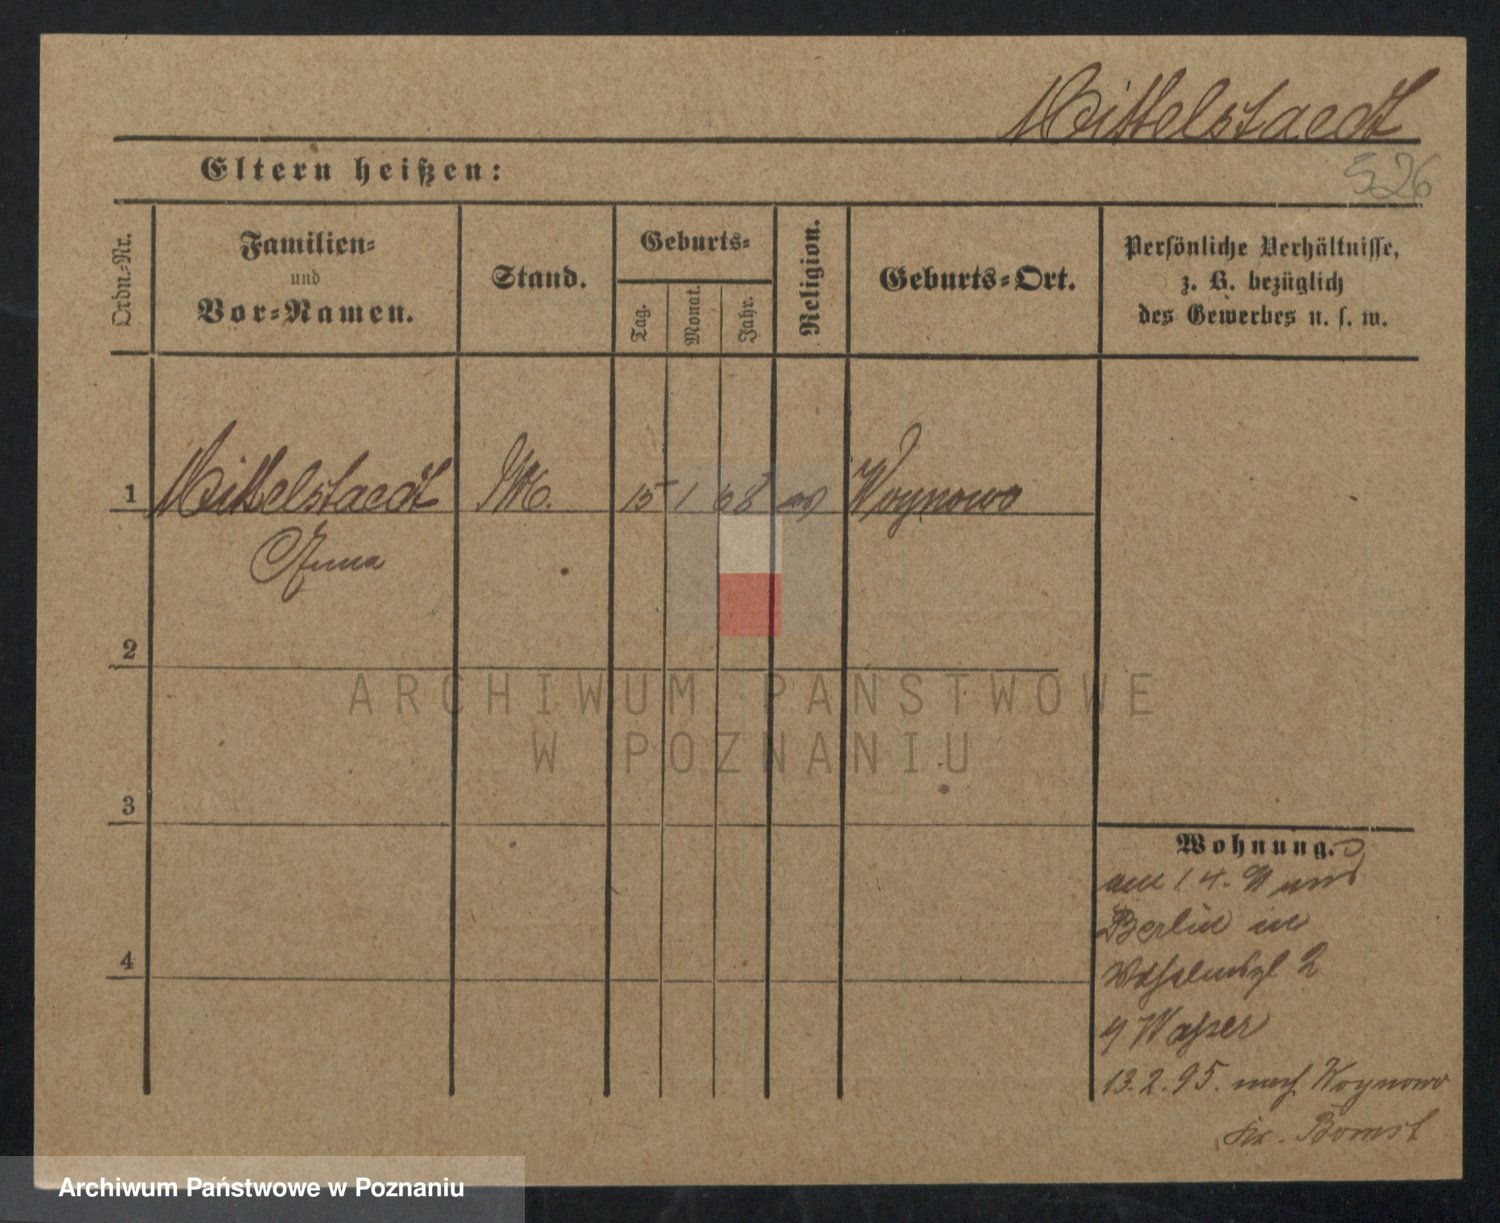 Mittelstaedt
526
Eltern heißen:
Ordn.-Nr.
Familien-
und
Vor-Namen.
Stand.
Geburts-
Tag.
Monat.
Jahr.
Religion.
Geburts-Ort.
Persönliche Verhältnisse,
z. B. bezüglich
des Gewerbes u. s. w.
1 Mittelstaedt 15 1 68 Woynowo
Anna
2
ARCHIWUM PAŃSTWOWE
W POZNANIU
3
Wohnung.
am 1 4.
Berlin in
2
Wasser
13.2.95. nach Woynowo
Kr. Bomst
4
Archiwum Państwowe w Poznaniu